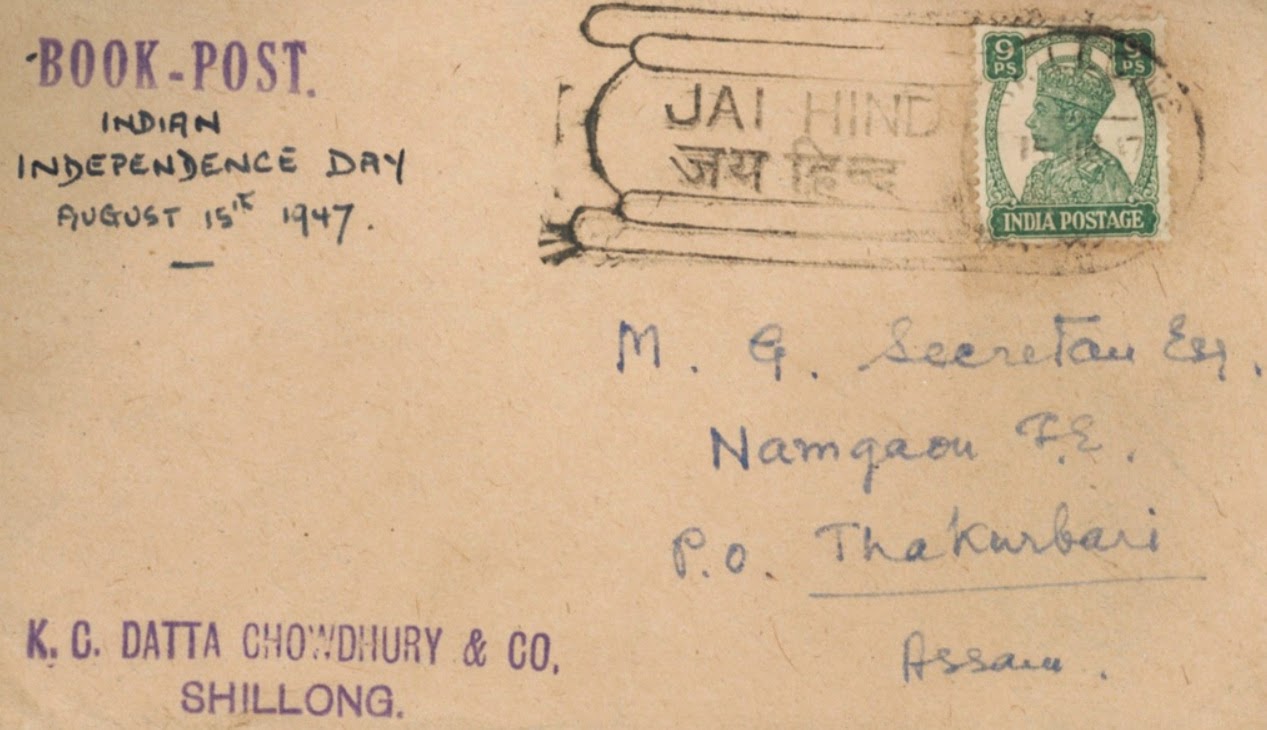 BOOK-POST.
INDIAN
INDEPENDENCE DAY
AUGUST 15th 1947.
JAI HIND
जय हिन्द
9 PS
9 PS
INDIA POSTAGE
M. G. Secretan Esq.
Namgaon T.E.
P.O. Thakurbari
Assam.
K. C. DATTA CHOWDHURY & CO.
SHILLONG.